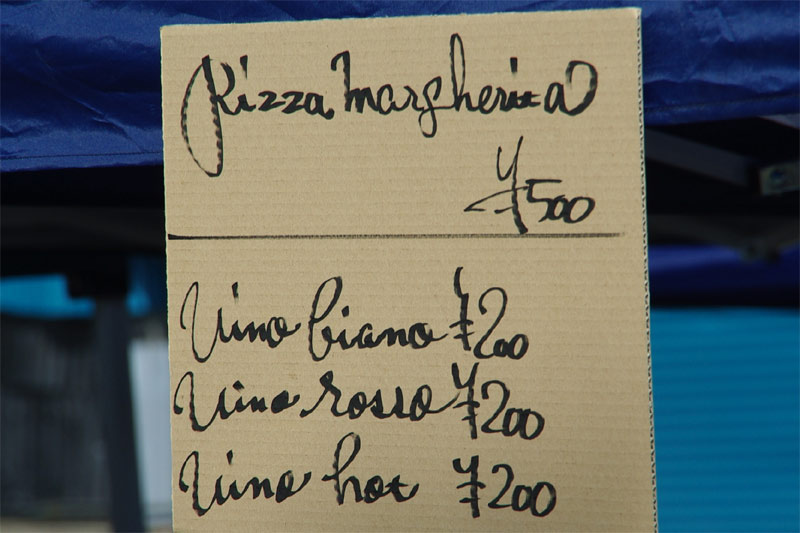 Pizza Margherita
¥500
Vino biano ¥200
Vino rosso ¥200
Vino hot ¥200